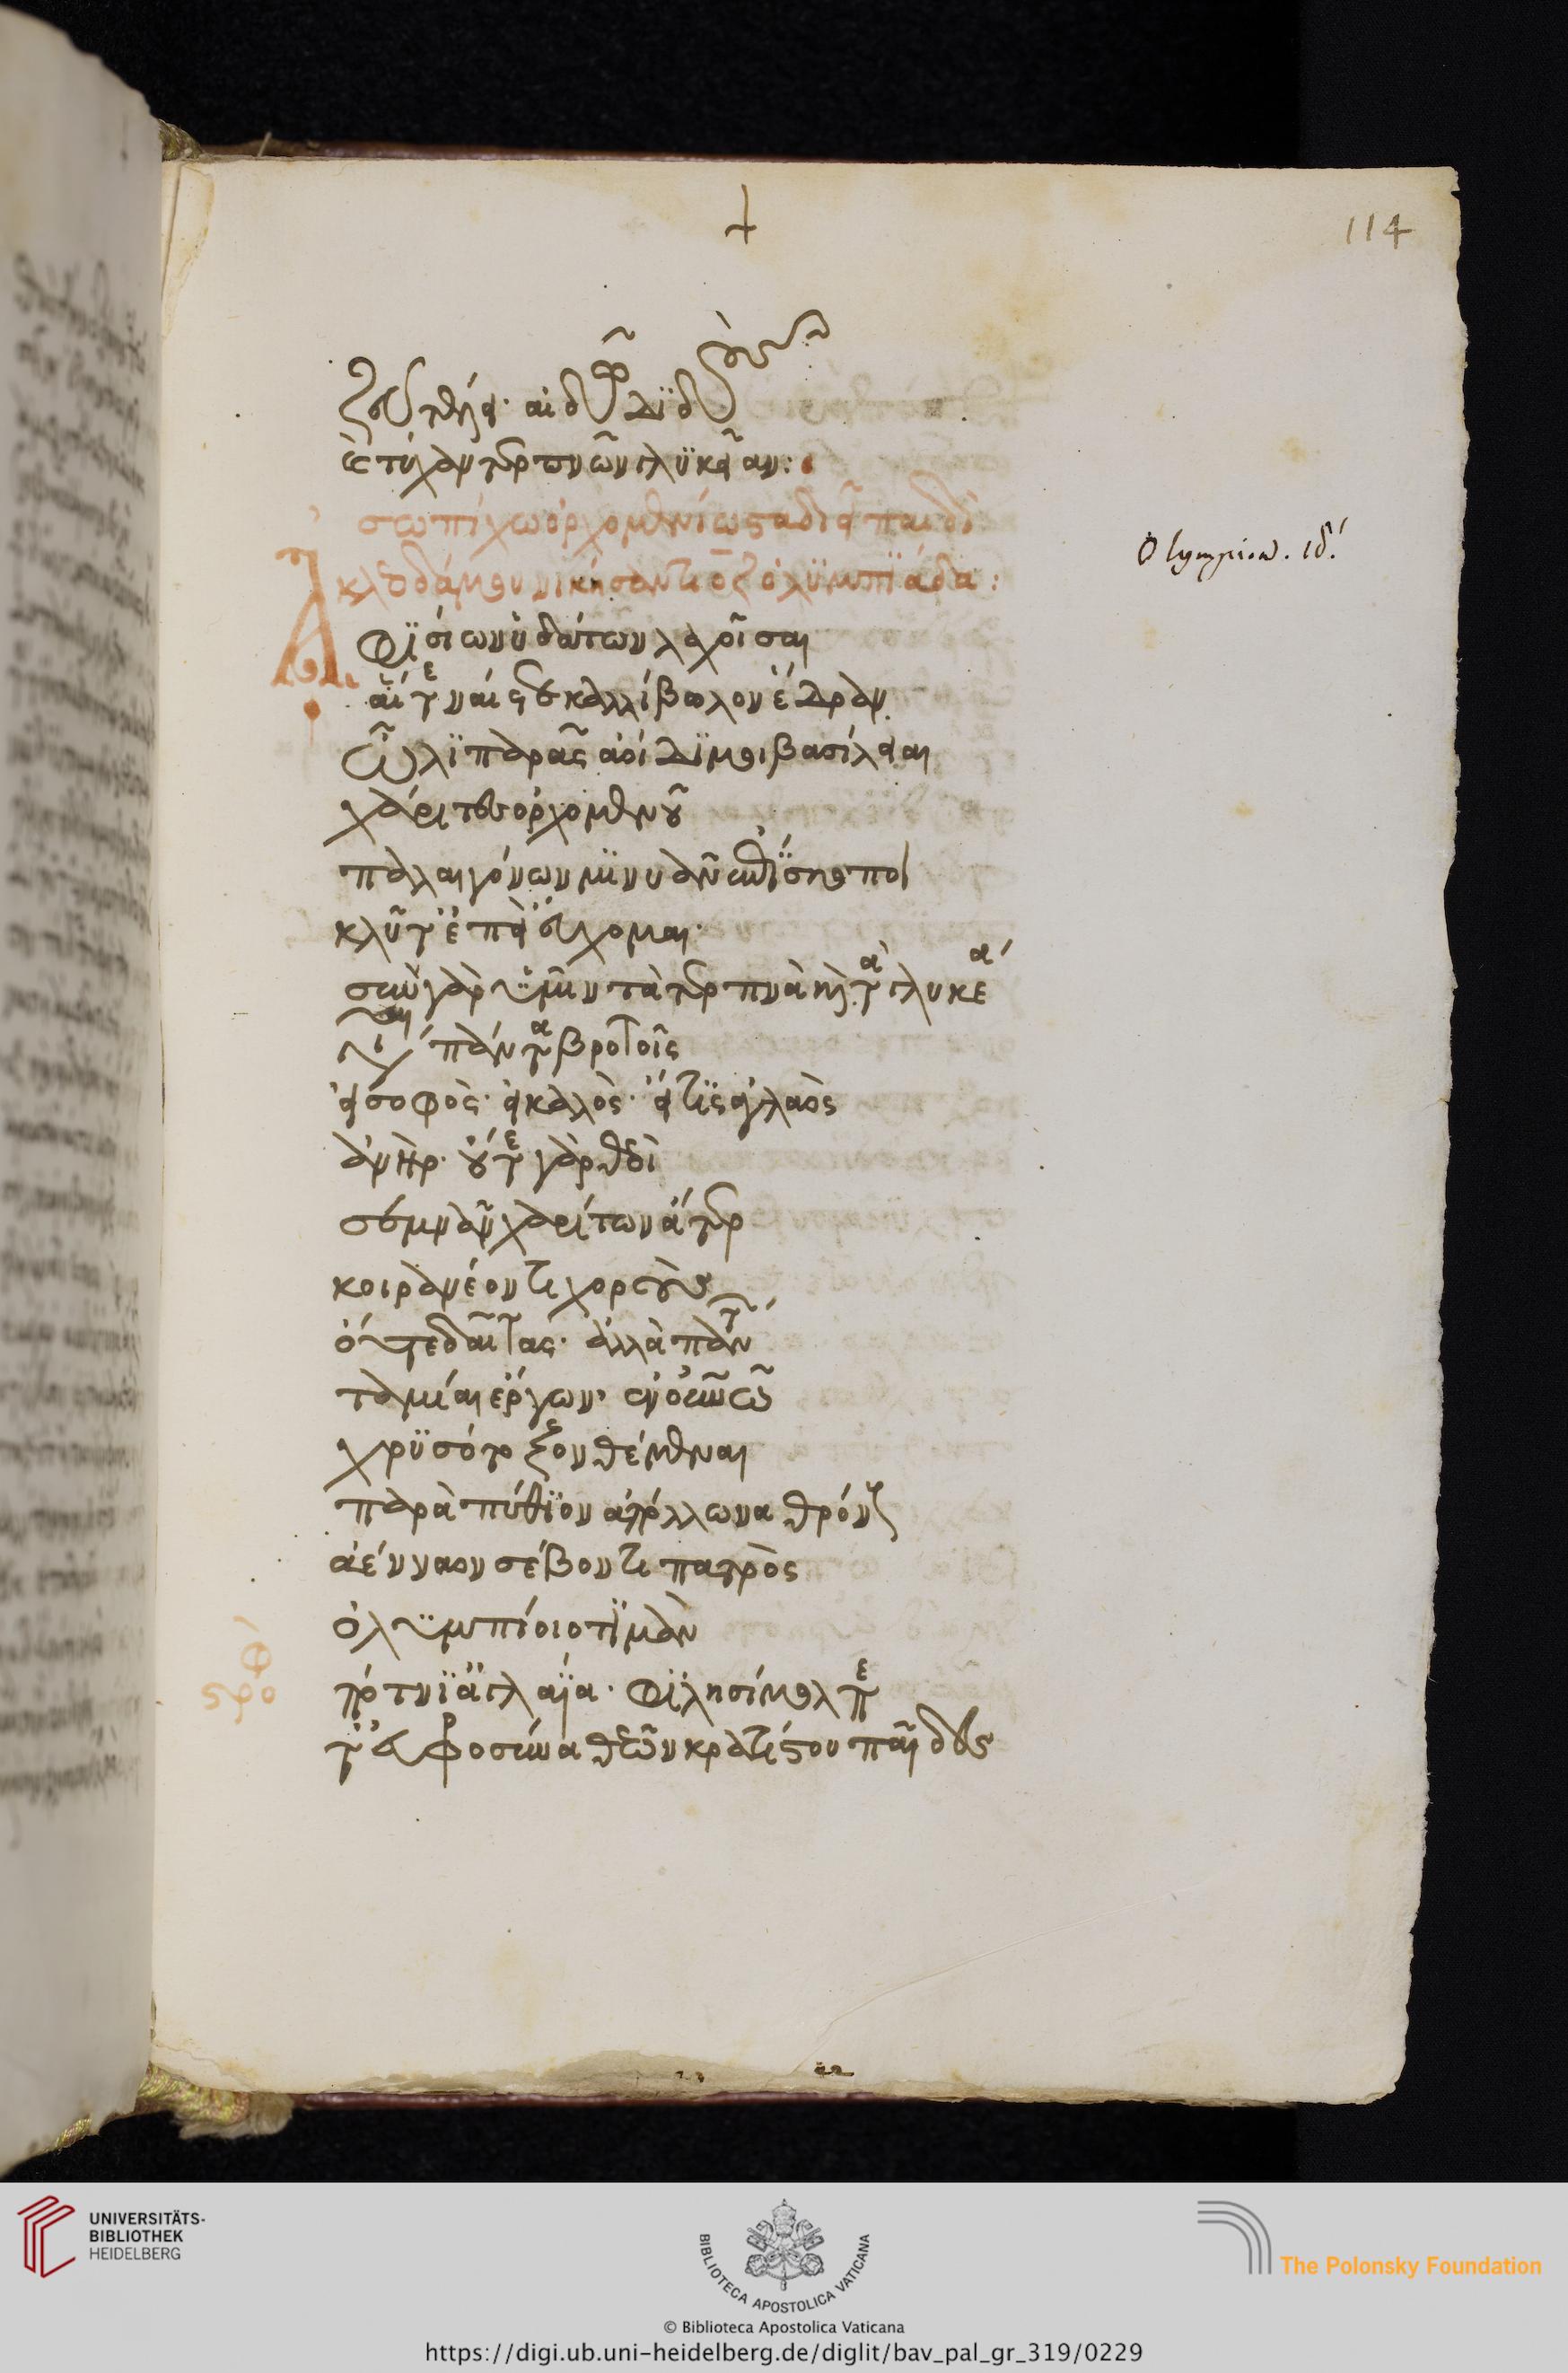 114
ζεῦ τέλει'· αἰδῶ δίδου καὶ
τύχαν τερπνῶν γλυκεῖαν:
σωπίχω ὀρχομενίω σταδιεῖ παιδὶ
Olympion. ιδ΄
κλεοδάμου νικήσαντι οζ ὀλυμπιάδα:
φισίων ὑδάτων λαχοῖσαι
αἵτε ναίετε καλλίβωλον ἕδραν
ὦ λιπαρᾶς ἀοίδιμοι βασίλειαι
χάριτες ὀρχομενοῦ
παλαιγόνων μινυᾶν ἐπίσκοποι
κλῦτ' ἐπεὶ εὔχομαι·
σὺν γὰρ ὑμῖν τὰ τερπνὰ καὶ τὰ γλυκέα
πάντα βροτοῖς
εἰ σοφὸς· εἰ καλὸς· εἴ τις ἀγλαὸς
ἀνὴρ· οὔτε γὰρ θεοὶ
σεμνᾶν χαρίτων ἄτερ
κοιρανέοντι χοροὺς
οὔτε δαῖτας· ἀλλὰ πάντων
ταμίαι ἔργων· ἐν οὐρανῶ
χρυσότοξον θέμεναι
παρὰ πύθιον ἀπόλλωνα θρόνους
ἀένναον σέβοντι πατρὸς
ὀλυμπίοιο τιμὰν
στροφ
πότνι' ἀγλαΐα· φιλησίμολπε
τ' εὐφροσύνα θεῶν κρατίστου παῖδες
UNIVERSITÄTS-
BIBLIOTHEK
HEIDELBERG
BIBLIOTECA APOSTOLICA VATICANA
The Polonsky Foundation
© Biblioteca Apostolica Vaticana
https://digi.ub.uni-heidelberg.de/diglit/bav_pal_gr_319/0229